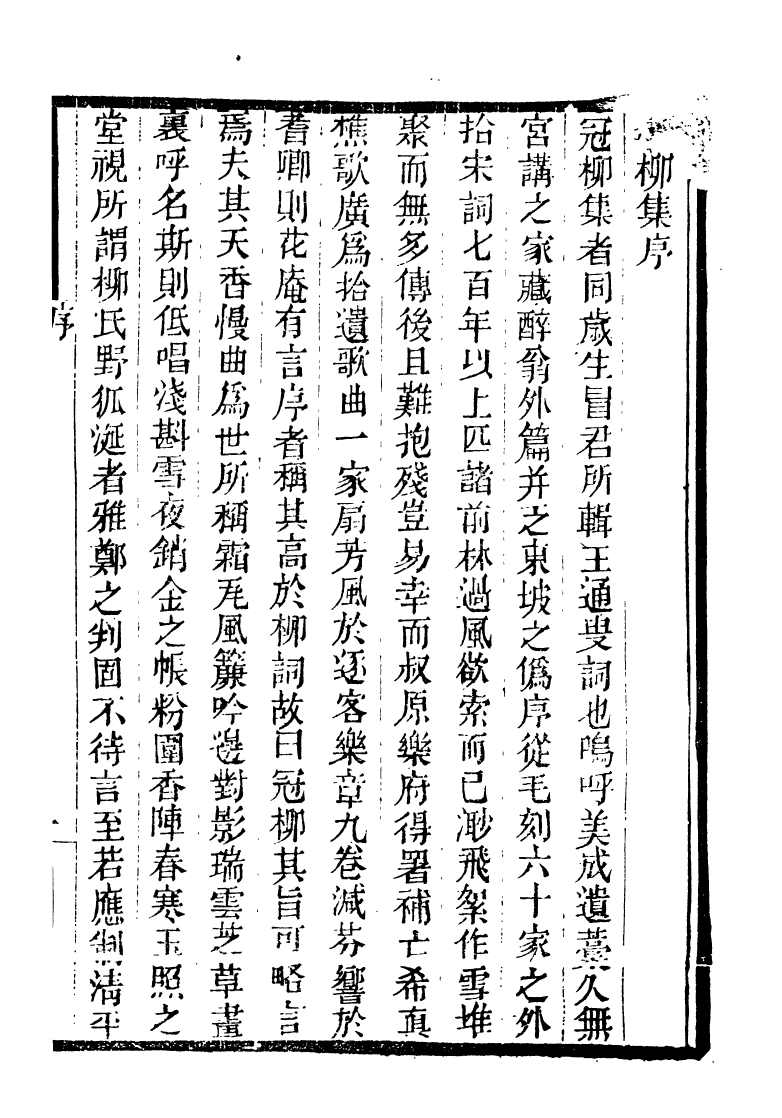 柳集序
冠柳集者同歲生冒君所輯王通叟詞也嗚呼美成遺藁久無
宮講之家藏醉翁外篇并之東坡之僞序從毛刻六十家之外
拾宋詞七百年以上匹諸前林過風欲索而已渺飛絮作雪堆
聚而無多傳後且難抱殘豈易幸而叔原樂府得署補亡希真
樵歌廣爲拾遺歌曲一家扇芳風於逐客樂章九卷減芬響於
耆卿則花庵有言序者稱其高於柳詞故曰冠柳其旨可略言
焉夫其天香慢曲爲世所稱霜瓦風簾吟邊對影瑞雲芝草畫
裏呼名斯則低唱淺斟雪夜銷金之帳粉圍香陣春寒玉照之
堂視所謂柳氏野狐涎者雅鄭之判固不待言至若應制清平
序
一